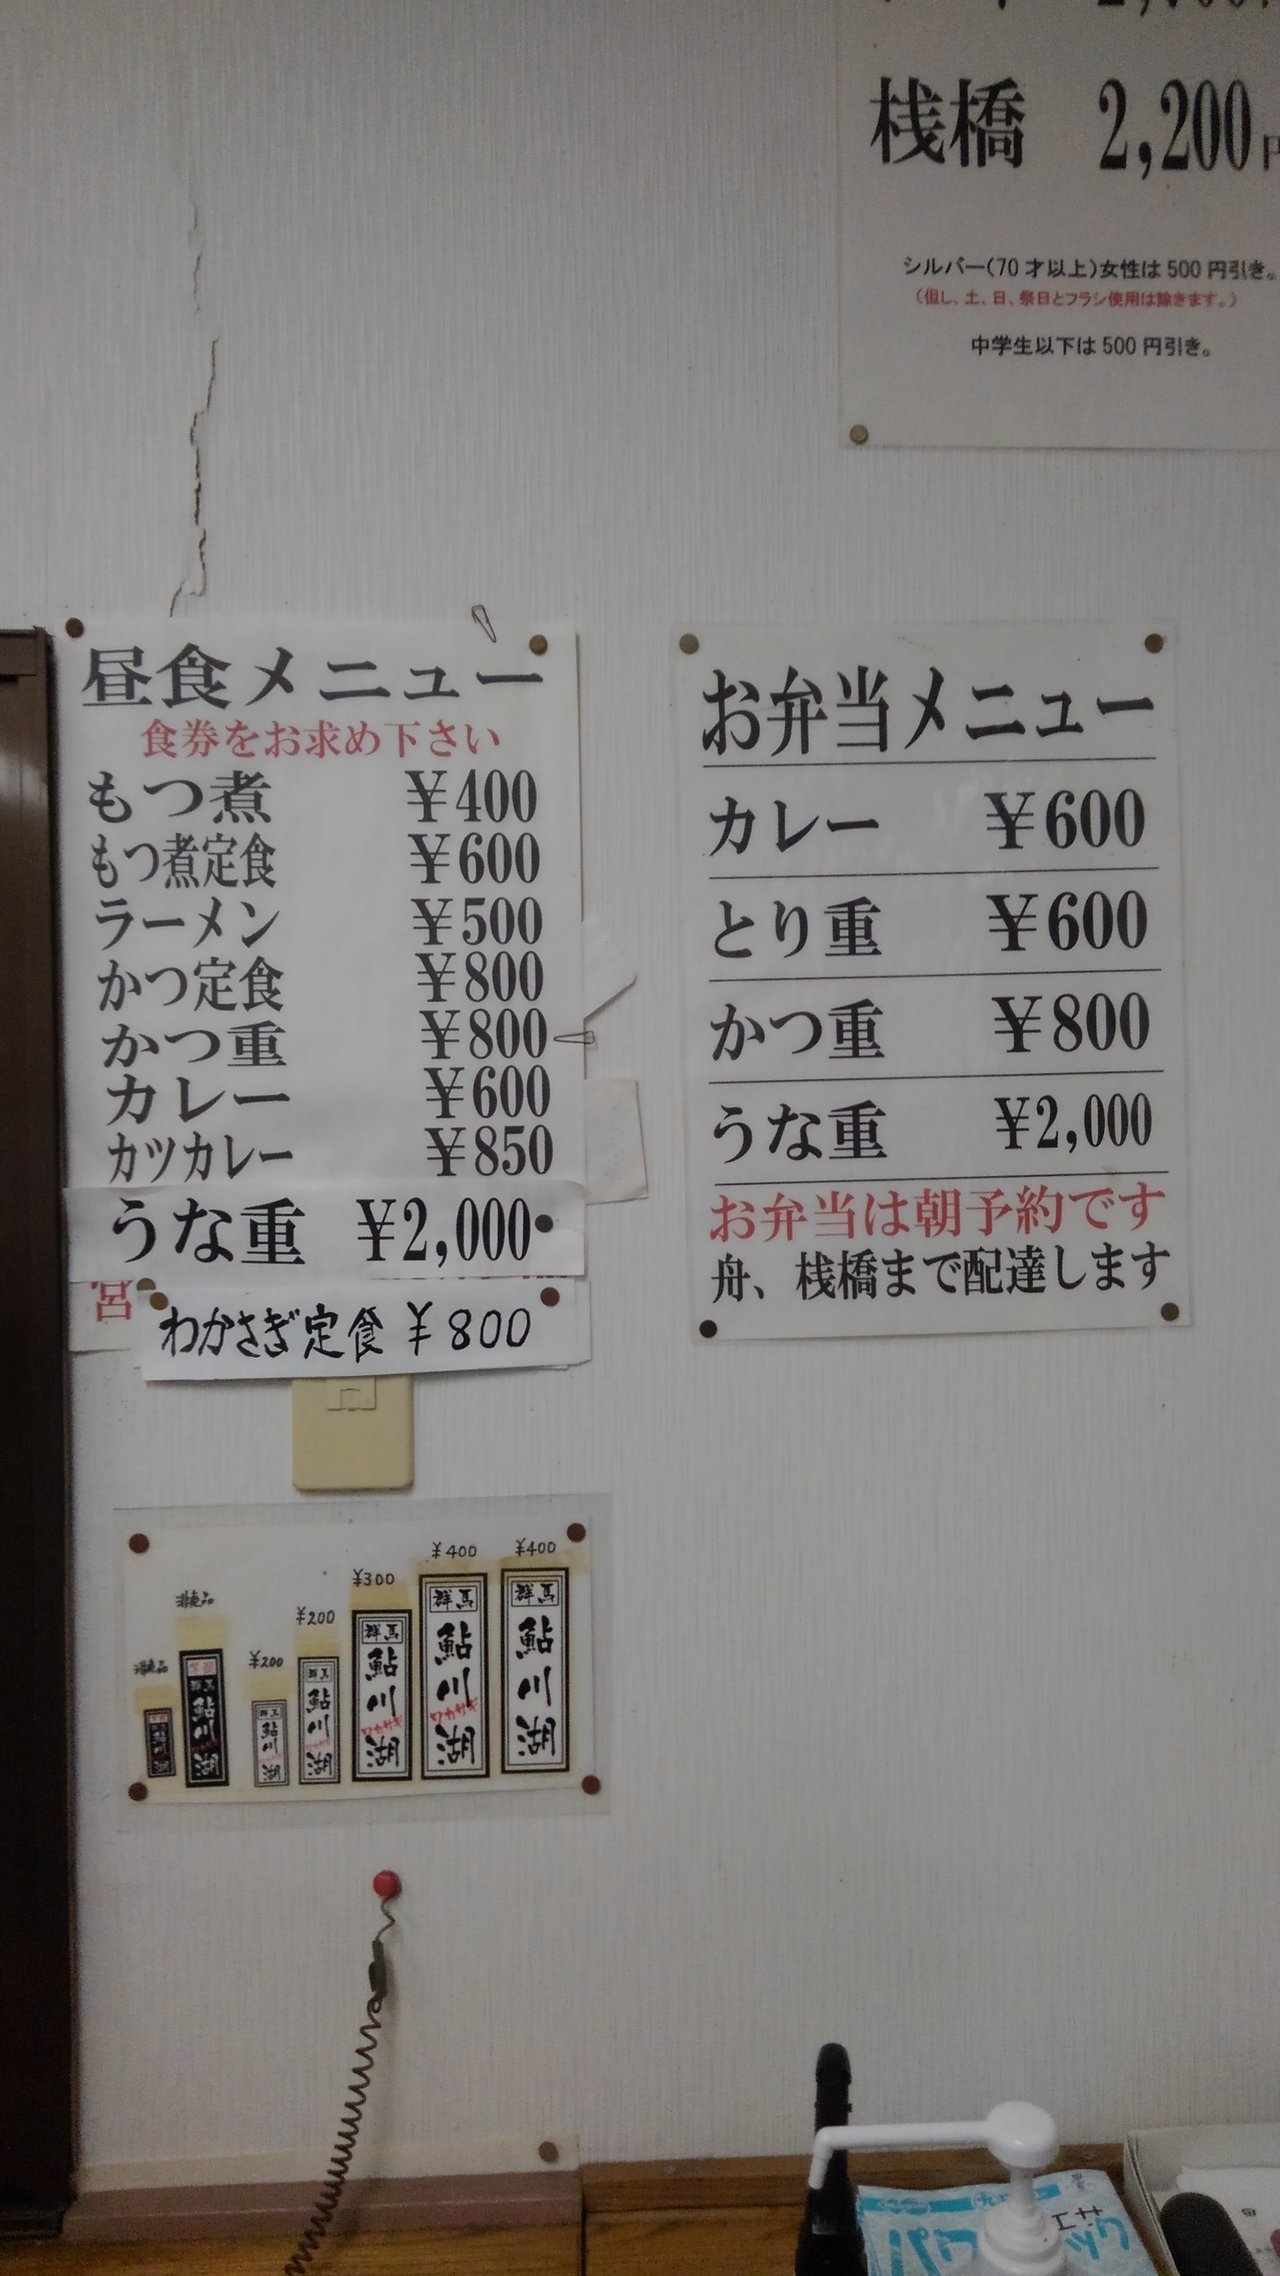 桟橋 2,200円
シルバー(70才以上)女性は500円引き。
(但し、土、日、祭日とフラシ使用は除きます。)
中学生以下は500円引き。
昼食メニュー
食券をお求め下さい
もつ煮 ￥400
もつ煮定食 ￥600
ラーメン ￥500
かつ定食 ￥800
かつ重 ￥800
カレー ￥600
カツカレー ￥850
うな重 ￥2,000
わかさぎ定食 ￥800
お弁当メニュー
カレー ￥600
とり重 ￥600
かつ重 ￥800
うな重 ￥2,000
お弁当は朝予約です
舟、桟橋まで配達します
非売品
非売品
￥200
￥200
￥300
￥400
￥400
鮎川湖
鮎川湖
鮎川湖
鮎川湖
群馬
鮎川湖
群馬
鮎川湖
群馬
鮎川湖